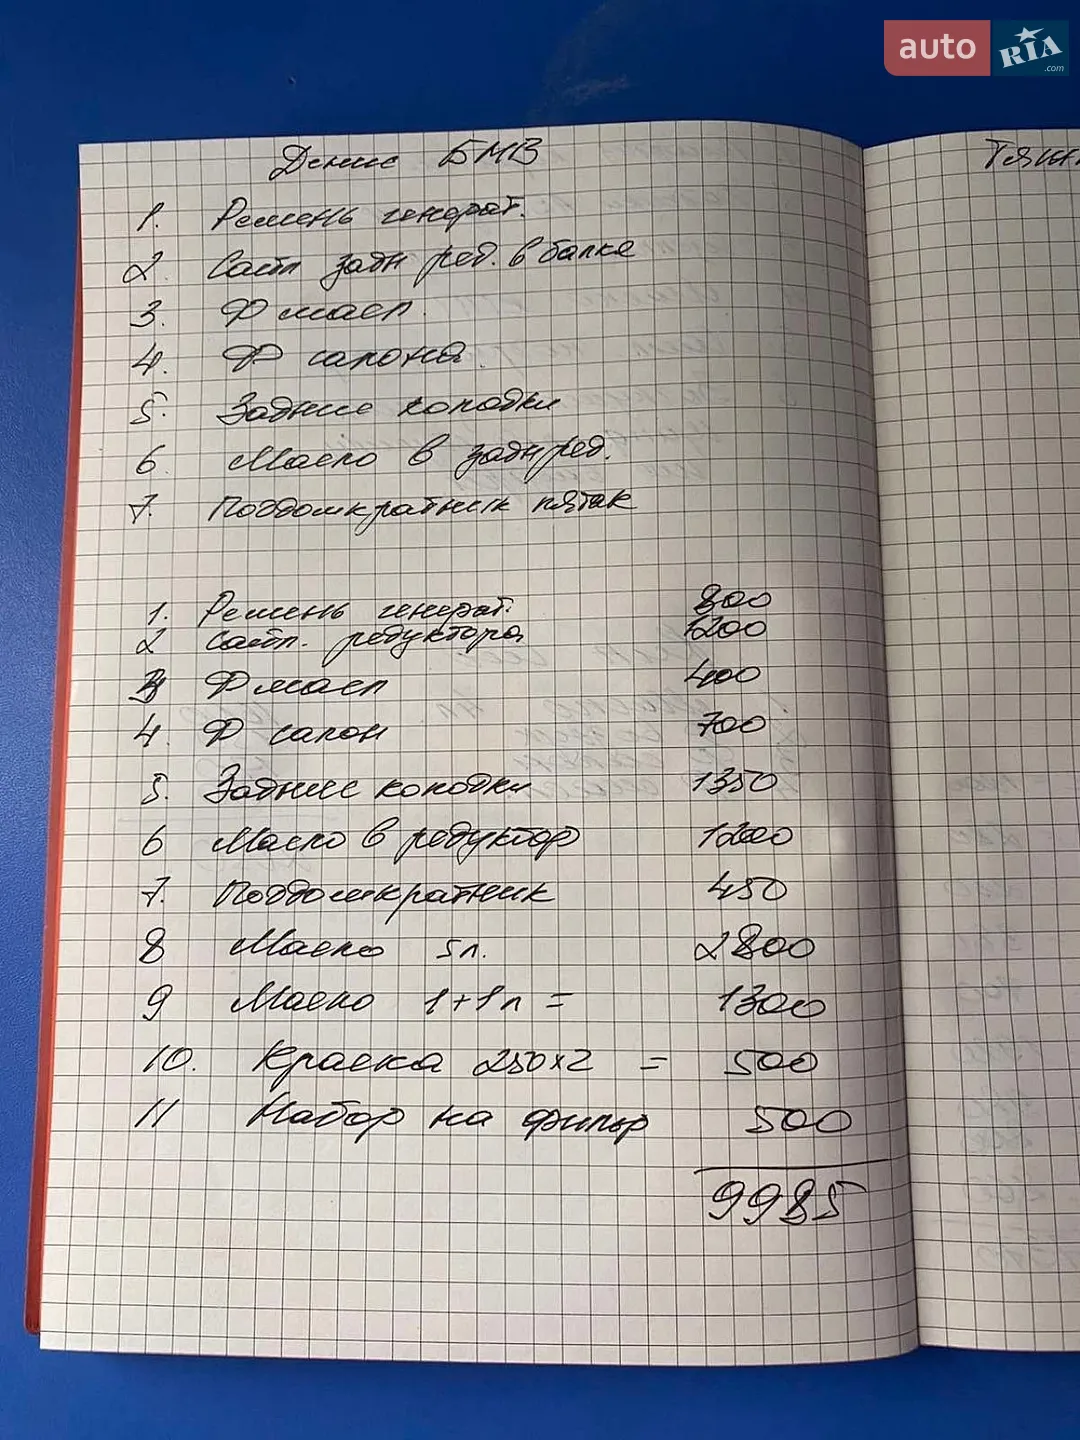 auto RIA .com
Денис БМВ
Тяжн
1. Ремень генерат.
2. Сайл задн ред. в балке
3. Ф масл.
4. Ф салона.
5. Задние колодки
6. Масло в задн ред.
7. Поддомкратник пятак
1. Ремень генерат. 800
2 Сайл. редуктора 1200
3 Ф масл 400
4. Ф салон 700
5. Задние колодки 1350
6 Масло в редуктор 1200
7. Поддомкратник 450
8 Масло 5л. 2800
9 Масло 1+1л = 1300
10. Краска 250x2 = 500
11 Набор на фильтр 500
9985